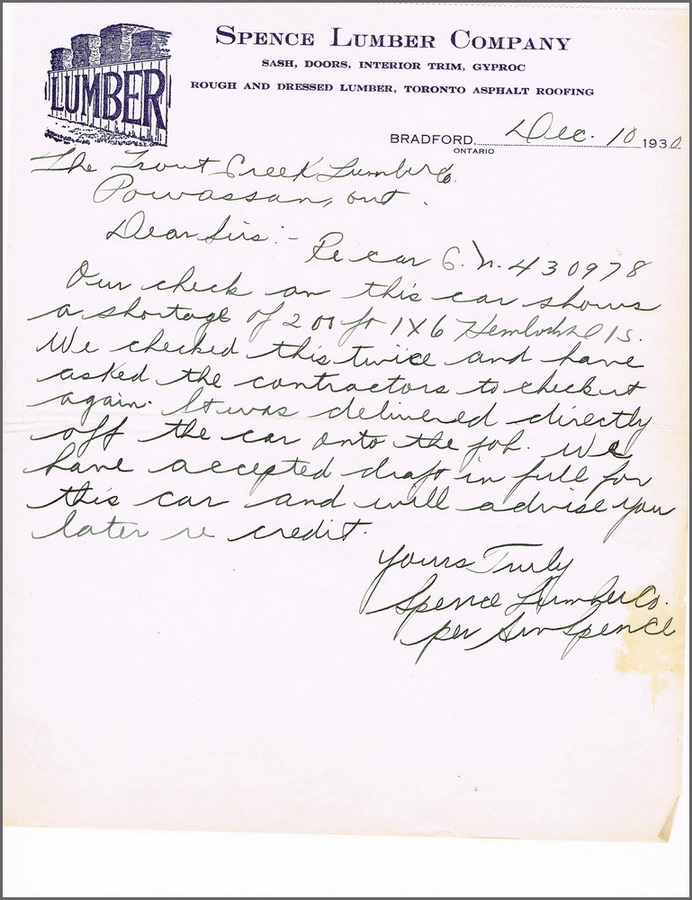 LUMBER
SPENCE LUMBER COMPANY
SASH, DOORS, INTERIOR TRIM, GYPROC
ROUGH AND DRESSED LUMBER, TORONTO ASPHALT ROOFING
BRADFORD, Dec. 10 1930
ONTARIO
The Trout Creek Lumber Co.
Powassan, Ont.
Dear Sirs:-
Re car G.N. 430978
Our check on this car shows
a shortage of 200 ft 1X6 Hemlock
We checked this twice and have
asked the contractors to check it
again. It was delivered directly
off the car onto the job. We
have accepted draft in full for
this car and will advise you
later re credit.
Yours Truly
Spence Lumber Co.
per Spence